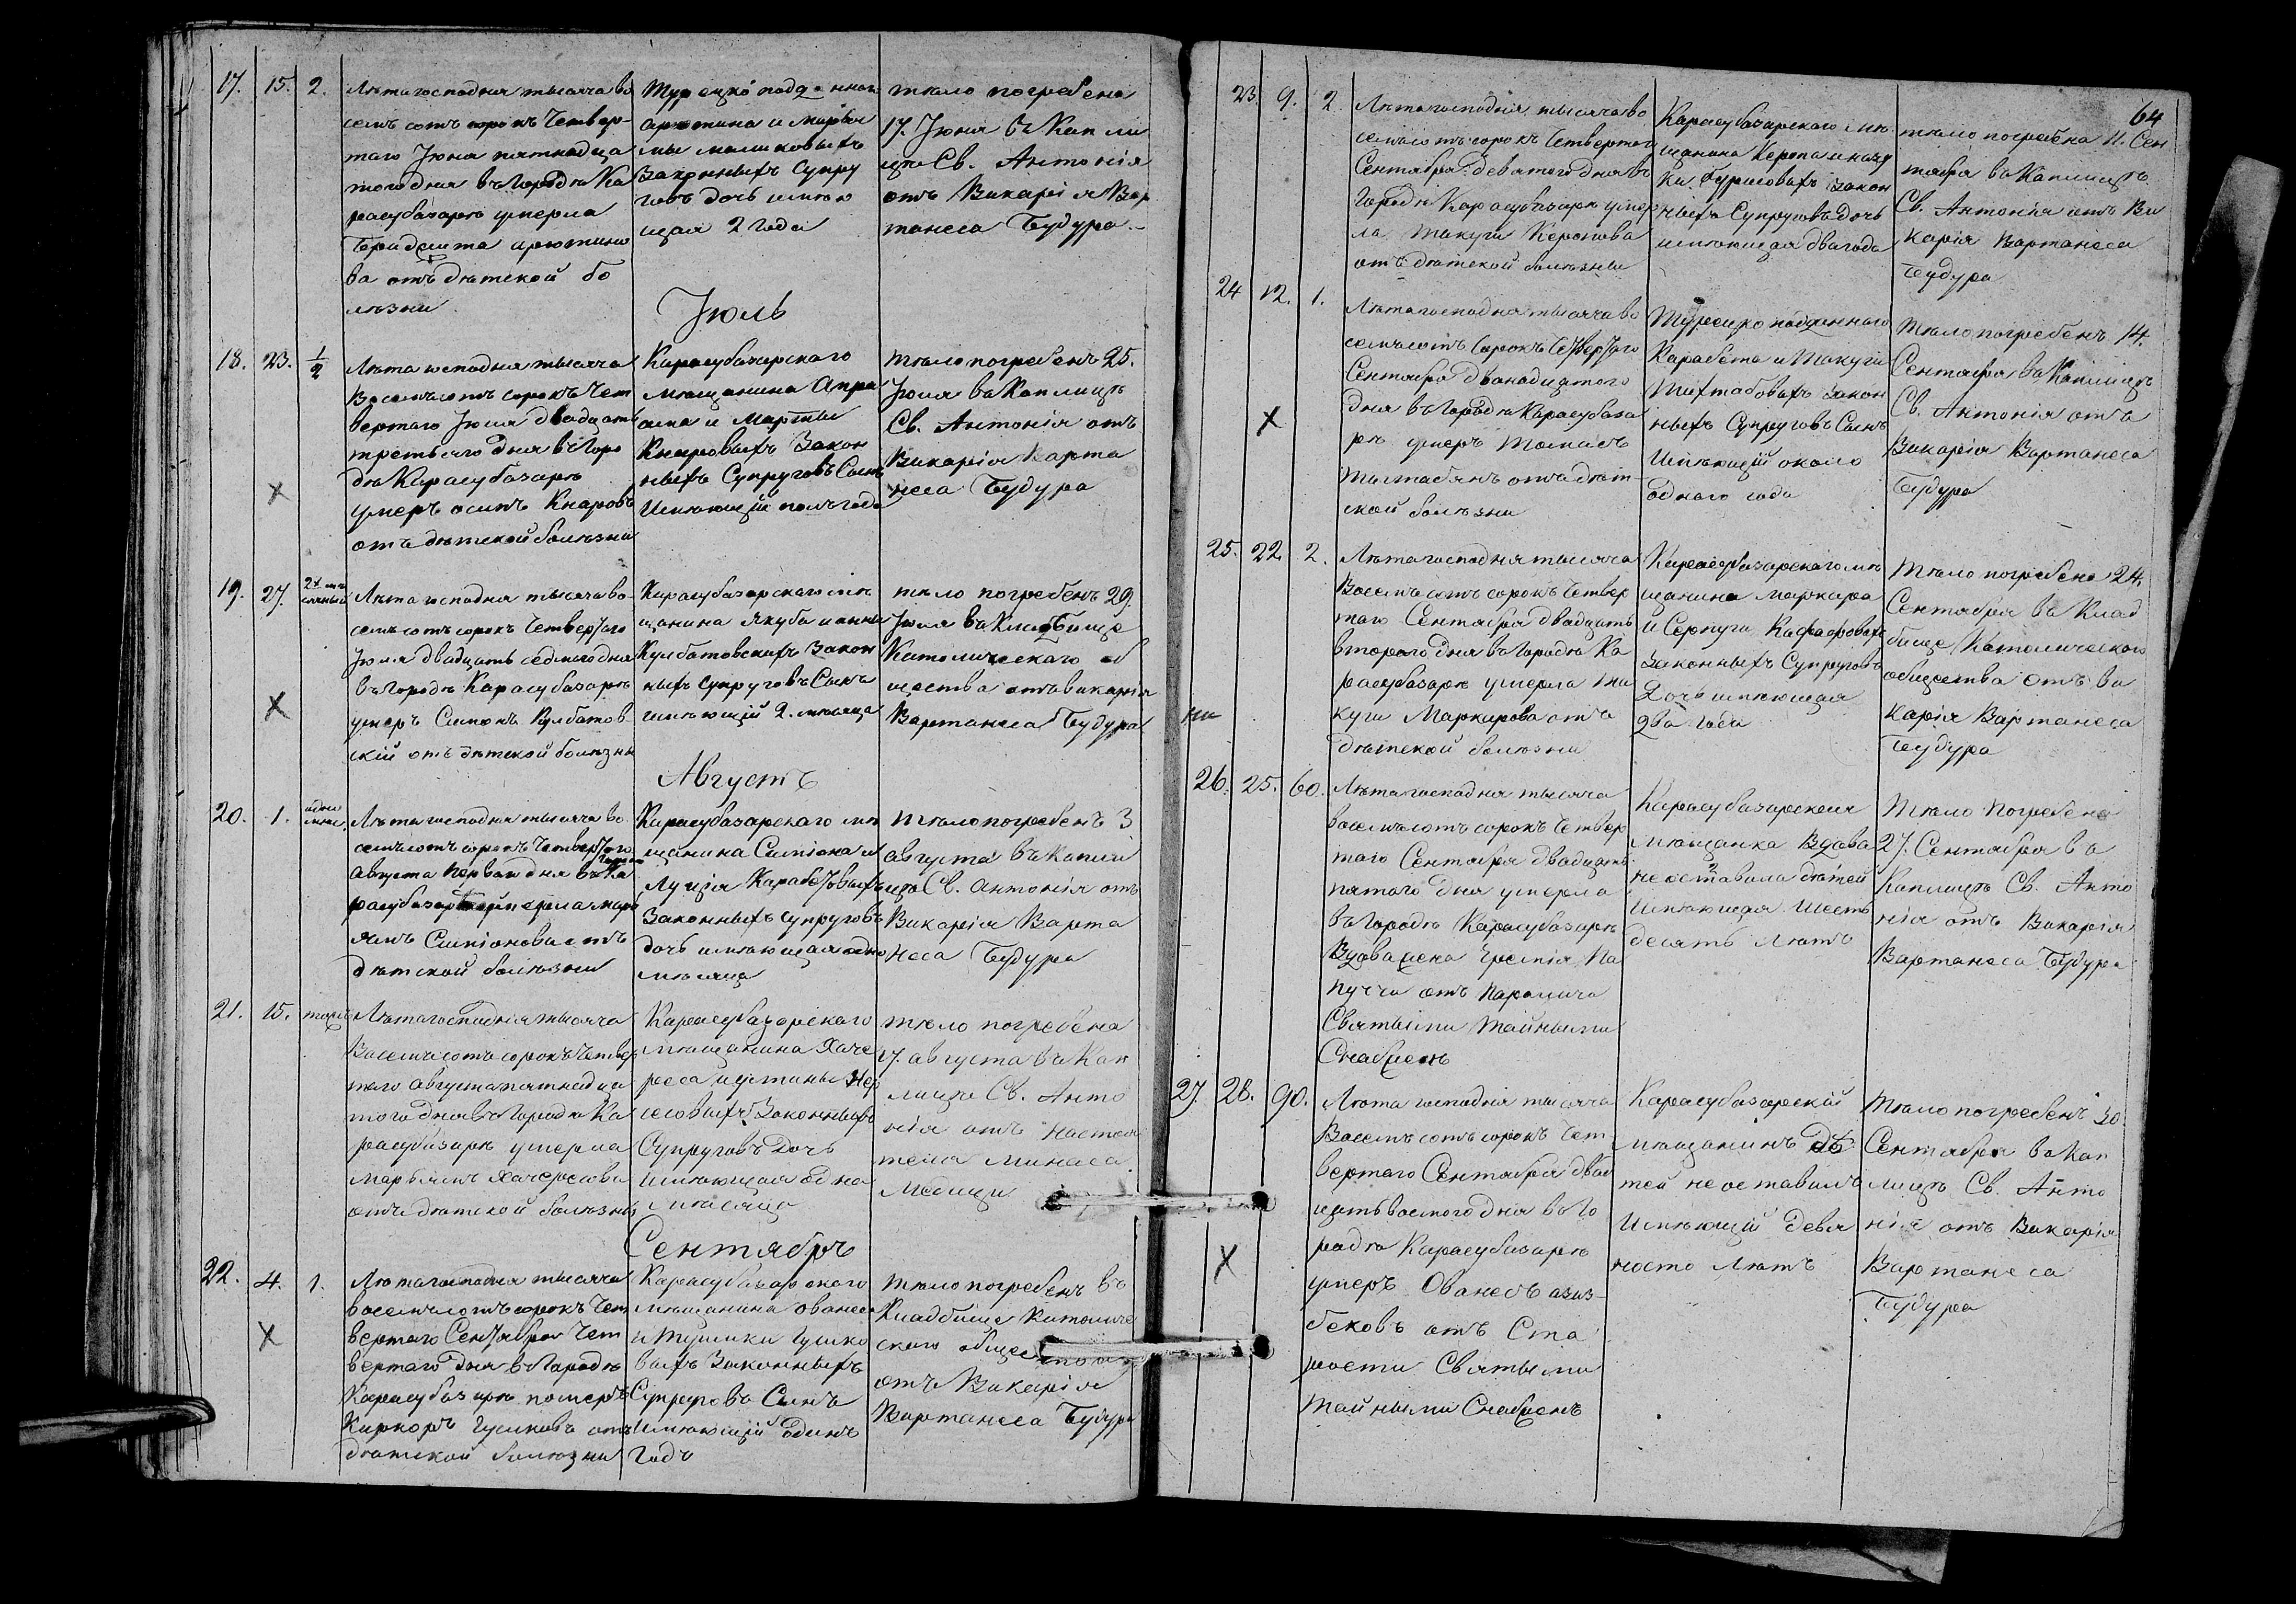 17. 15. 2.
Лѣта господня тысяча во
семь сотъ сорокъ Четвер-
таго Іюня пятнадца
того дня въ Городѣ Ка
расубазарѣ умерла
ва отъ дѣтской бо
лѣзни
Турецко поддан
Законныхъ Супру
говъ дочь имѣю
щая 2 года
тѣло погребена
17. Іюня въ Капли
цѣ Св. Антонія
отъ Викарія Вар
танеса Будура
Іюль
18. 23. 1/2
Лѣта господня тысяча
Восемьсотъ сорокъ Чет
вертаго Іюля двадцать
третьяго дня въ Горо
дѣ Карасубазарѣ
умеръ осипъ Кнаровъ
отъ дѣтской болѣзни
Карасубазарскаго
Мѣщанина Апра
ама и Марты
Кнаровыхъ Закон
ныхъ Супруговъ Сынъ
Имѣющій полъ года
тѣло погребенъ 25.
Іюля въ Каплицѣ
Св. Антонія отъ
Викарія Варта
неса Будура
X
19. 27.
Лѣта господня тысяча во
семьсотъ сорокъ Четвертаго
Іюля двадцать седмаго дня
въ Городѣ Карасубазарѣ
умеръ Симонъ Кулбатов
скій отъ дѣтской болѣзни
Карасубазарскаго мѣ
щанина Якуба и анны
Кулбатовскихъ Закон
ныхъ супруговъ Сынъ
имѣющій 2. мѣсяца
тѣло погребенъ 29.
Іюля въ Кладбище
Католическаго об
щества отъ викарія
Вартанеса Будура
X
Августъ
20. 1.
Лѣта господня тысяча во
семьсотъ сорокъ Четвертаго
Августа Первый дня въ Ка
ямъ Симіонова отъ
дѣтской болѣзни
Карасубазарскаго мѣ
щанина Симіона и
Луція Карабетовыхъ
Законныхъ супруговъ
дочь имѣющая одно
мѣсяца
тѣло погребенъ 3
августа въ Капли
цѣ Св. антонія отъ
Викарія Варта
неса Будура
21. 15.
Лѣта господня тысяча
Восемьсотъ сорокъ Четвер
таго августа пятнадца
того дня въ Городѣ Ка
расубазарѣ умерла
Марьямъ Хачересова
отъ дѣтской болѣзни
Карасубазарскаго
мѣщанина Хаче
реса и устины
Законныхъ
Супруговъ Дочь
имѣющая одна
мѣсяца
тѣло погребена
17. августа въ Кап
лицѣ Св. Анто
нія отъ Настоя
теля Минаса
Медици
Сентябрь
22. 4. 1.
Лѣта господня тысяча
восемьсотъ сорокъ Чет
вертаго Сентября Чет
вертаго дня въ Городѣ
Карасубазарѣ померъ
Киркоръ Гуликовъ отъ
дѣтской болѣзни
Карасубазарскаго
мѣщанина Ованеса
выхъ Законныхъ
Супруговъ Сынъ
имѣющій одинъ
годъ
тѣло погребенъ въ
Кладбище Католиче
скаго общества
отъ Викарія
Вартанеса Будура
X
64
23. 9. 2.
Лѣта господня тысяча во
семьсотъ сорокъ Четвертаго
Сентября девятого дня въ
Городѣ Карасубазарѣ умер
ла Такуги Керопова
отъ дѣтской болѣзни
Карасубазарскаго мѣ
щанина Керопа
закон
ныхъ Супруговъ дочь
имѣющая два года
тѣло погребена 11. Сен
тября въ Каплицѣ
Св. Антонія отъ Ви
карія Вартанеса
Будура
24 12. 1.
Лѣта господня тысяча во
семьсотъ Сорокъ Четвертаго
Сентября двенадцатого
дня въ Городѣ Карасубаза
рѣ умеръ
отъ дѣт
ской болѣзни
Турецко подданнаго
Карабета и Такуги
Тихтабовыхъ Закон
ныхъ Супруговъ Сынъ
Имѣющій около
одного года
тѣло погребенъ 14.
Сентября въ Каплицѣ
Св. Антонія отъ
Викарія Вартанеса
Будура
X
25. 22 2.
Лѣта господня тысяча
Восемьсотъ сорокъ Четвер
таго Сентября двадцать
второго дня въ Городѣ Ка
расубазарѣ умерла Та
куги Маркарова отъ
дѣтской болѣзни
Карасубазарскаго мѣ
щанина Маркара
и Серпуги
Законныхъ Супруговъ
Дочь имѣющая
два года
тѣло погребена 24.
Сентября въ Клад
бище Католическаго
общества отъ ви
карія Вартанеса
Будура
26. 25. 60.
Лѣта господня тысяча
восемьсотъ сорокъ Четвер
таго Сентября двадцать
пятаго дня умерла
въ Городѣ Карасубазарѣ
отъ паралича
Святыми Тайными
Снабженъ
Карасубазарская
мѣщанка Вдова
не оставила дѣтей
Имѣющая Шесть
десятъ лѣтъ
Тѣло Погребена
27. Сентября въ
Каплицѣ Св. Анто
нія отъ Викарія
Вартанеса Будура
27. 28. 90.
Лѣта господня тысяча
Восемьсотъ сорокъ Чет
вертаго Сентября двад
цать восмого дня въ Го
родѣ Карасубазарѣ
умеръ Ованесъ азиз-
бековъ отъ Ста
рости Святыми
Тайными Снабженъ
Карасубазарскій
мѣщанинъ дѣ
тей не оставилъ
Имѣющій девя
носто лѣтъ
Тѣло погребенъ 30
Сентября въ Кап
лицѣ Св. Анто
нія отъ Викарія
Вартанеса
Будура
X